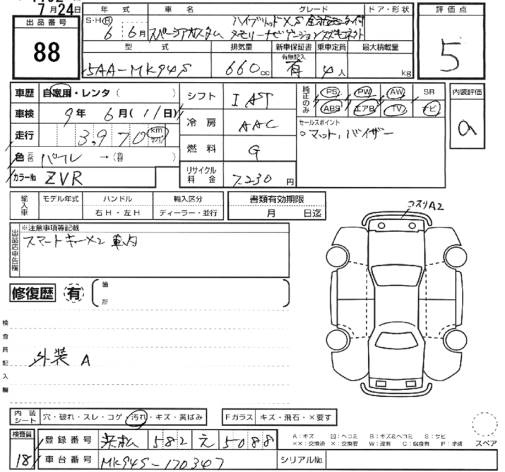 7月24日
出品番号
88
年式 車名 グレード ドア・形状
S・H・R 6年6月 スペーシアカスタム ハイブリッドXS
型式 排気量 新車保証書 乗車定員 最大積載量
有無記入
5AA-MK94S 660cc 有 4人 kg
評価点
5
車歴 自家用・レンタ
車検 9年6月(11日)
走行 3,970 km
色 パール
カラーNo. ZVR
シフト IAT
冷房 AAC
燃料 G
リサイクル料金 7,230円
純正のみ
PS PW AW SR
ABS エアB TV ナビ
セールスポイント
○マット、バイザー
内装評価
a
輸入車 モデル年式 ハンドル 輸入区分
右H・左H ディーラー・並行
書類有効期限
月 日迄
出品店申告欄
※注意事項等記載
スマートキー×2 車内
修復歴 有 箇所
検査員記入欄
外装 A
コスリA2
内装シート 穴・破れ・スレ・コゲ・汚れ・キズ・黄ばみ
Fガラス キズ・飛石・×要す
スペア
検査員
181
登録番号 浜松 582 え 5088
車台番号 MK94S-170347
シリアルNo.